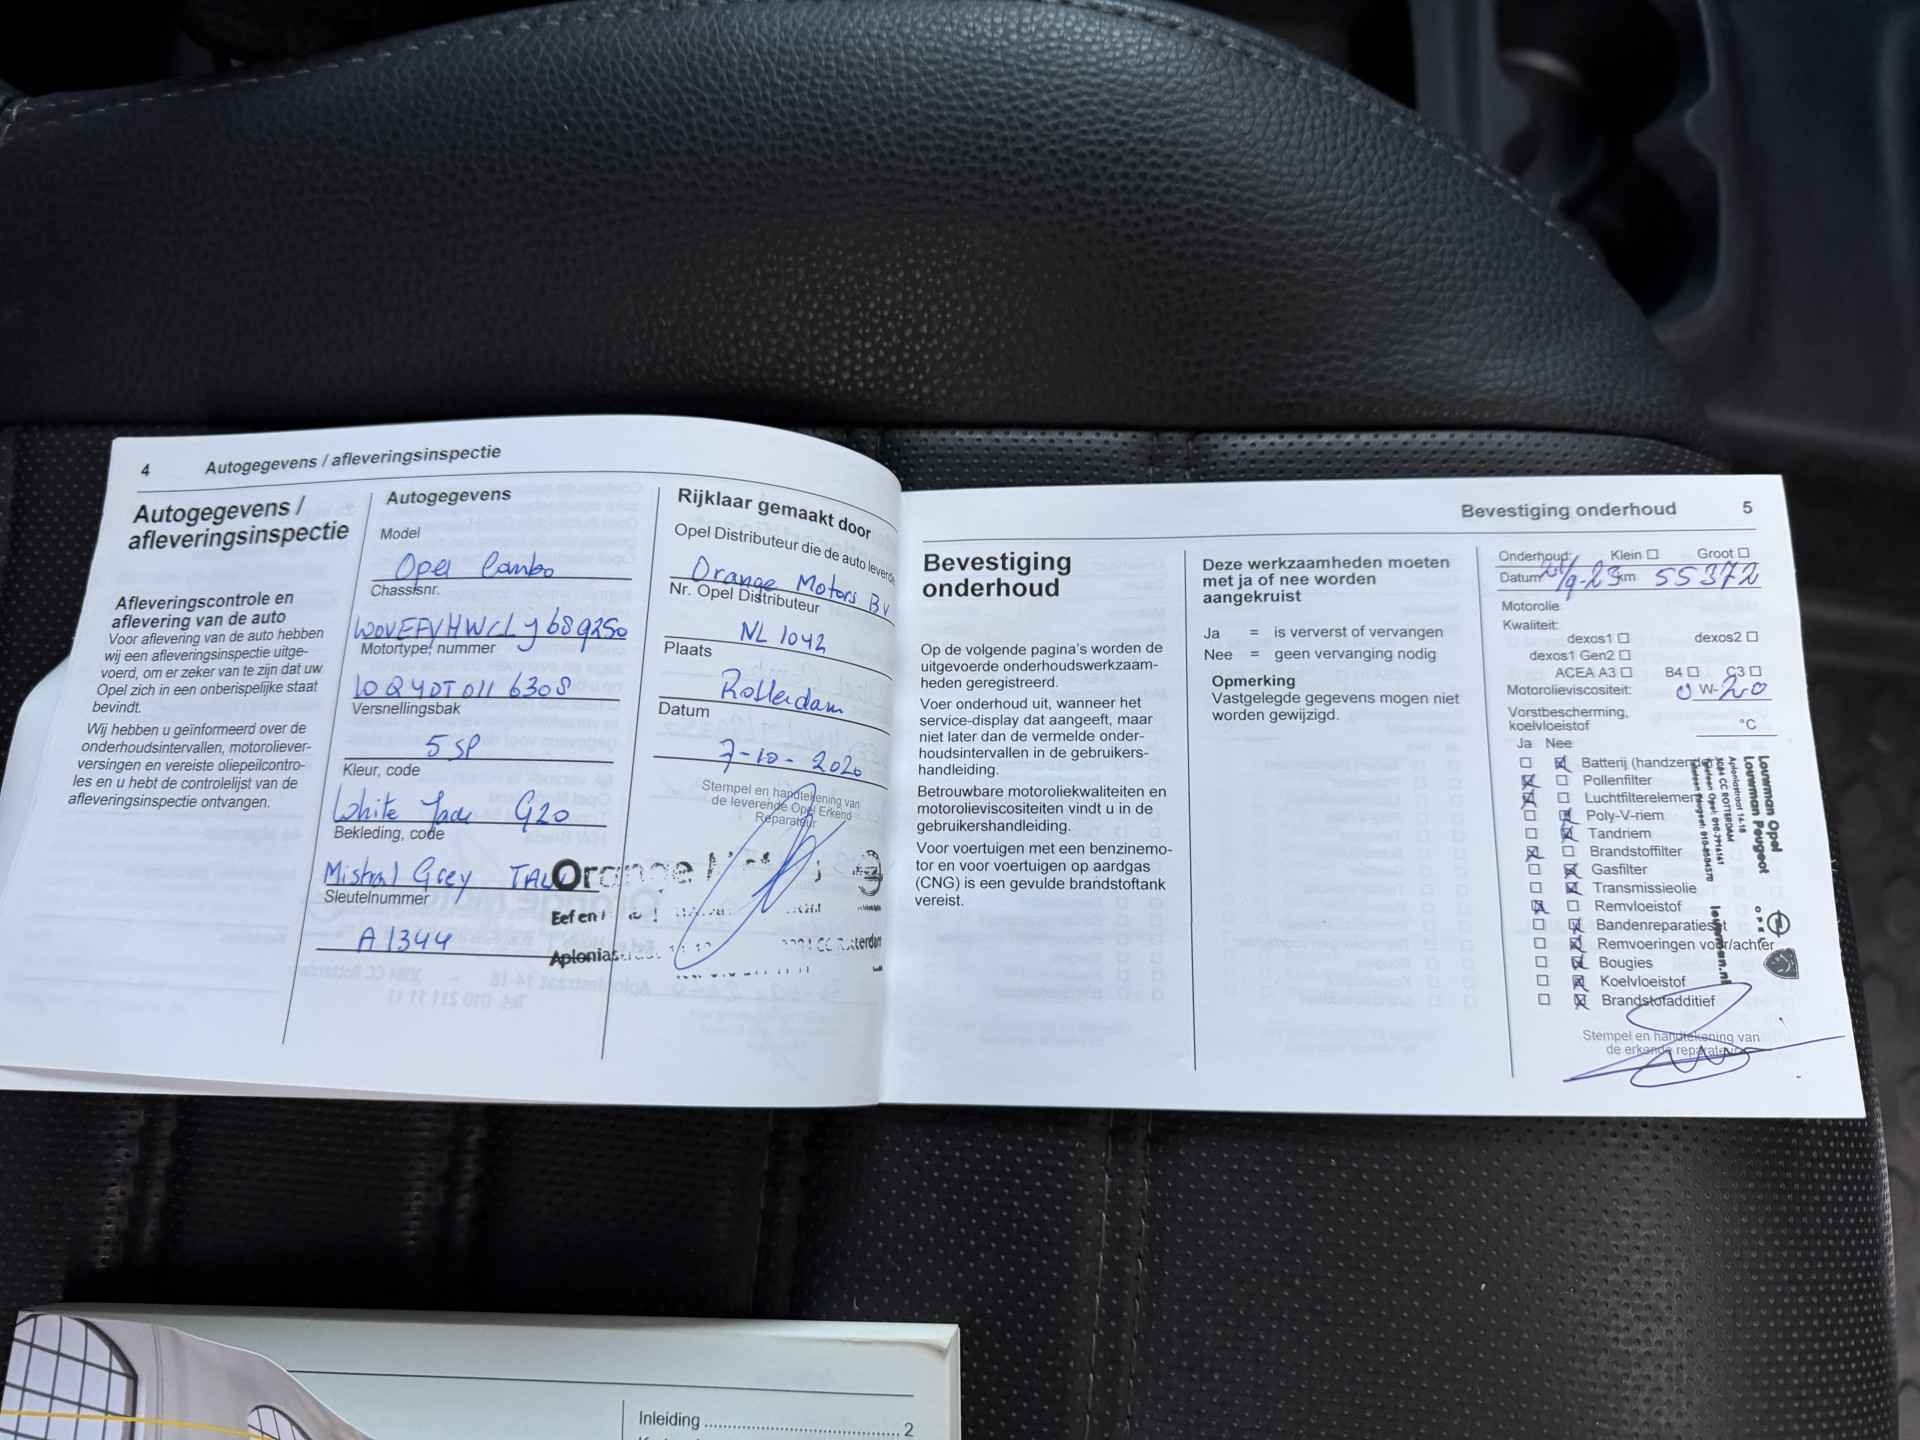 4 Autogegevens / afleveringsinspectie
Autogegevens /
afleveringsinspectie
Afleveringscontrole en
aflevering van de auto
Voor aflevering van de auto hebben
wij een afleveringsinspectie uitge-
voerd, om er zeker van te zijn dat uw
Opel zich in een onberispelijke staat
bevindt.
Wij hebben u geïnformeerd over de
onderhoudsintervallen, motoroliever-
versingen en vereiste oliepeilcontro-
les en u hebt de controlelijst van de
afleveringsinspectie ontvangen.
Autogegevens
Model
Opel Combo
Chassisnr.
Motortype, nummer
Versnellingsbak
5 SP
Kleur, code
White Jade G20
Bekleding, code
Mistral Grey
Sleutelnummer
A 1344
Rijklaar gemaakt door
Opel Distributeur die de auto leverde
Orange Motors BV
Nr. Opel Distributeur
NL 1042
Plaats
Rotterdam
Datum
7-10-2020
Stempel en handtekening van
de leverende Opel Erkend
Reparateur
Orange
Eef en
Bevestiging onderhoud 5
Bevestiging
onderhoud
Op de volgende pagina's worden de
uitgevoerde onderhoudswerkzaam-
heden geregistreerd.
Voer onderhoud uit, wanneer het
service-display dat aangeeft, maar
niet later dan de vermelde onder-
houdsintervallen in de gebruikers-
handleiding.
Betrouwbare motoroliekwaliteiten en
motorolieviscositeiten vindt u in de
gebruikershandleiding.
Voor voertuigen met een benzinemo-
tor en voor voertuigen op aardgas
(CNG) is een gevulde brandstoftank
vereist.
Deze werkzaamheden moeten
met ja of nee worden
aangekruist
Ja = is ververst of vervangen
Nee = geen vervanging nodig
Opmerking
Vastgelegde gegevens mogen niet
worden gewijzigd.
Onderhoud: Klein Groot
Datum km 55372
Motorolie
Kwaliteit:
dexos1 dexos2
dexos1 Gen2
ACEA A3 B4 C3
Motorolieviscositeit: 0 W-20
Vorstbescherming,
koelvloeistof °C
Ja Nee
Batterij
Pollenfilter
Luchtfilterelement
Poly-V-riem
Tandriem
Brandstoffilter
Gasfilter
Transmissieolie
Remvloeistof
Bandenreparatieset
Remvoeringen voor/achter
Bougies
Koelvloeistof
Brandstofadditief
Stempel en handtekening van
de erkende reparateur
Louwman Opel
Louwman Peugeot
Aploniastraat 14-18
3084 CC ROTTERDAM
louwman.nl
OPEL
Inleiding 2